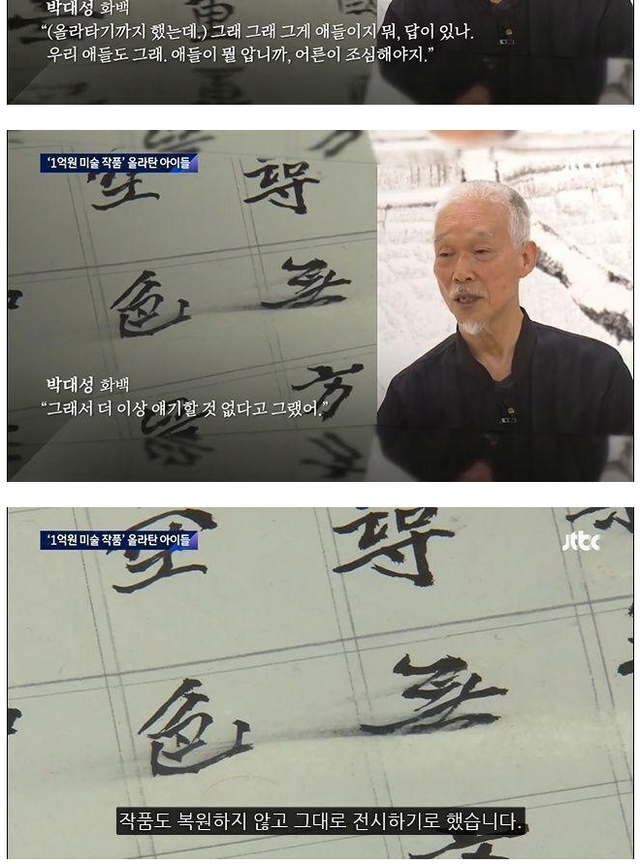 박대성 화백
“(올라타기까지 했는데.) 그래 그래 그게 애들이지 뭐, 답이 있나.
우리 애들도 그래. 애들이 뭘 압니까, 어른이 조심해야지.”
‘1억원 미술 작품’ 올라탄 아이들
jtbc
尋
色 無
方
박대성 화백
“그래서 더 이상 얘기할 것 없다고 그랬어.”
‘1억원 미술 작품’ 올라탄 아이들
jtbc
尋
色 無
작품도 복원하지 않고 그대로 전시하기로 했습니다.